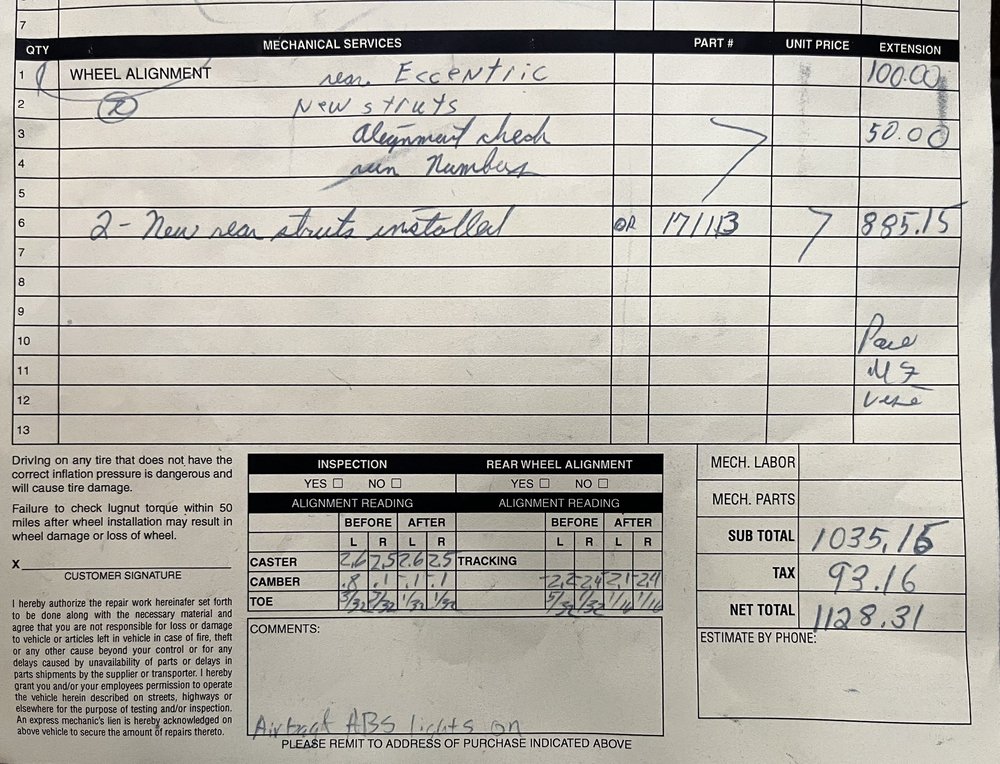 7
QTY MECHANICAL SERVICES PART # UNIT PRICE EXTENSION
1 WHEEL ALIGNMENT rear Eccentric 100.00
2 New struts
3 Alignment check 50.00
4 run Numbers
5
6 2- New rear struts installed OR 171113 885.15
7
8
9
10
11
12
13
Driving on any tire that does not have the
correct inflation pressure is dangerous and
will cause tire damage.
Failure to check lugnut torque within 50
miles after wheel installation may result in
wheel damage or loss of wheel.
X
CUSTOMER SIGNATURE
I hereby authorize the repair work hereinafer set forth
to be done along with the necessary material and
agree that you are not responsible for loss or damage
to vehicle or articles left in vehicle in case of fire, theft
or any other cause beyond your control or for any
delays caused by unavailability of parts or delays in
parts shipments by the supplier or transporter. I hereby
grant you and/or your employees permission to operate
the vehicle herein described on streets, highways or
elsewhere for the purpose of testing and/or inspection.
An express mechanic's lien is hereby acknowledged on
above vehicle to secure the amount of repairs thereto.
INSPECTION REAR WHEEL ALIGNMENT
YES NO YES NO
ALIGNMENT READING ALIGNMENT READING
BEFORE AFTER BEFORE AFTER
L R L R L R L R
CASTER 2.6 2.5 2.6 2.5 TRACKING
CAMBER .8 .1 -.1 -.1 -2.2 -2.4 -2.1 -2.4
TOE 3/32 3/32 1/32 1/32 5/32 1/32 1/16 1/16
COMMENTS:
Airbag ABS lights on
PLEASE REMIT TO ADDRESS OF PURCHASE INDICATED ABOVE
MECH. LABOR
MECH. PARTS
SUB TOTAL 1035.15
TAX 93.16
NET TOTAL 1128.31
ESTIMATE BY PHONE: